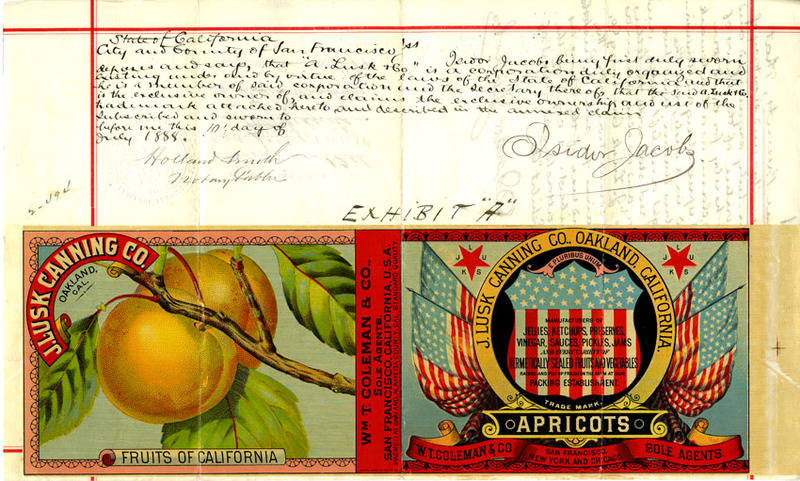 State of California
City and County of San Francisco ss
Isidor Jacobs being first duly sworn
deposes and says, that "A. Lusk & Co" is a corporation duly organized and
existing under and by virtue of the laws of the State of California and that
he is a member of said corporation and the Secretary thereof, that the said A. Lusk & Co.
is the exclusive owner of, and claims the exclusive ownership and use of the
trademark attached hereto and described in the annexed claim
Subscribed and sworn to
before me this 10th day of
July 1888.
Holland Smith
Notary Public
Isidor Jacobs
EXHIBIT "A"
J. LUSK CANNING CO.
OAKLAND,
CAL.
FRUITS OF CALIFORNIA
WM T. COLEMAN & CO.,
SOLE AGENTS.
SAN FRANCISCO, CALIFORNIA, U.S.A.
J. LUSK CANNING CO., OAKLAND, CALIFORNIA.
J L U S K
J L U S K
E PLURIBUS UNUM
MANUFACTURERS OF
JELLIES, KETCHUPS, PRESERVES,
VINEGAR, SAUCES, PICKLES, JAMS
AND EVERY VARIETY OF
HERMETICALLY SEALED FRUITS AND VEGETABLES
RAISED AND PUT UP FRESH IN THE FARM AT OUR
PACKING ESTABLISHMENT.
TRADE MARK.
APRICOTS
W.T. COLEMAN & CO
SAN FRANCISCO,
NEW YORK AND CHICAGO.
SOLE AGENTS.